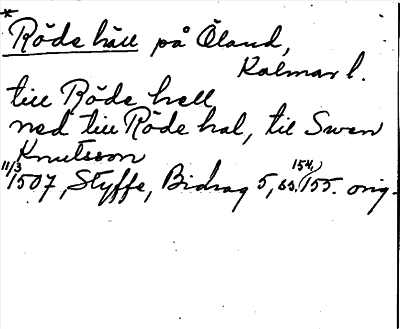 *
Röde häll på Öland,
Kalmar l.
till Röde hell
ned till Röde hal, til Swen
Knutsson
11/3 1507, Styffe, Bidrag 5, ss. 154, 155. orig.